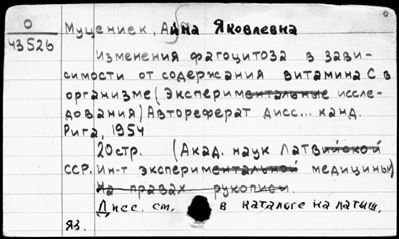 О
43526
Муцениек, Айна Яковлевна
Изменения фагоцитоза в зави-
симости от содержания витамина С в
организме (Экспериментальные иссле-
дования) Автореферат дисс... канд.
Рига, 1954
20стр. (Акад. наук Латвийской
ССР. Ин-т экспериментальной медицины)
На правах рукописи.
Дисс. ст. в каталоге на латыш.
яз.